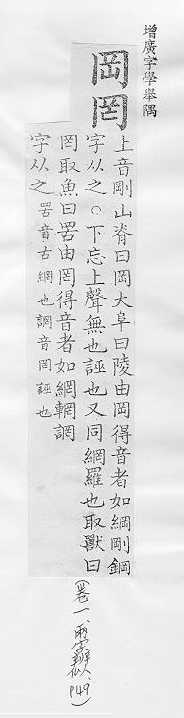 增廣字學舉隅
岡罔
上音剛山脊曰岡大阜曰陵由岡得音者如綱剛鋼
字从之○下忘上聲無也誣也又同網羅也取獸曰
罔取魚曰罟由罔得音者如網輞誷
字从之罟音古網也誷音罔誣也
(卷一、兩字辨似、P49)